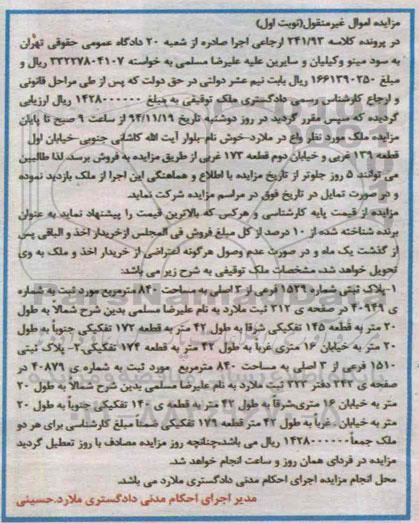 مزایده اموال غیرمنقول(نوبت اول)
در پرونده کلاسه ۲۴۱/۹۳ ارجاعی اجرا صادره از شعبه ۲۰ دادگاه عمومی حقوقی تهران
به سود مینو وکیلیان و سایرین علیه علیرضا مسلمی به خواسته ۳۳۲۲۷۸۰۴۱۰۷ ریال و
مبلغ ۱۶۶۱۳۹۰۲۵۰ ریال بابت نیم عشر دولتی در حق دولت که پس از طی مراحل قانونی
و ارجاع کارشناس رسمی دادگستری ملک توقیفی به مبلغ ۱۴۲۸۰۰۰۰۰۰۰ ریال ارزیابی
گردیده که سپس مقرر گردید در روز دوشنبه تاریخ ۹۴/۱۱/۱۹ از ساعت ۹ صبح تا پایان
مزایده ملک مورد تعارفاع در ملارد-خوش نام بلوار آیت الله کاشانی جنوبی-خیابان اول
قطعه ۱۳۶ غربی و خیابان دوم قطعه ۱۷۳ غربی از طریق مزایده به فروش برسد. لذا طالبین
می توانند ۵ روز جلوتر از تاریخ مزایده با اطلاع و هماهنگی این اجرا از ملک بازدید نموده
و در صورت تمایل در تاریخ فوق در مراسم مزایده شرکت نمایند.
مزایده از قیمت پایه کارشناسی و هرکس که بالاترین قیمت را پیشنهاد نماید به عنوان
برنده شناخته شده از ۱۰ درصد از کل مبلغ فروش فی المجلس ازخریدار اخذ و الباقی پس
از گذشت یک ماه و در صورت عدم وصول هرگونه اعتراضی از خریدار اخذ و ملک به وی
تحویل خواهد شد، مشخصات ملک توقیفی به شرح زیر می باشد:
۱-پلاک ثبتی شماره ۱۵۲۹ فرعی از ۳ اصلی به مساحت ۸۴۰ مترمربع مورد ثبت به شماره
ی ۴۰۹۴۹ در صفحه ی ۳۱۲ ثبت ملارد به نام علیرضا مسلمی بدین شرح شمالا به طول
۲۰ متر به قطعه ۱۴۵ تفکیکی شرقا به طول ۴۲ متر به قطعه ۱۷۲ تفکیکی جنوبا به طول
۲۰ متر به خیابان ۱۶ متری غربا به طول ۴۲ متر به قطعه ۱۷۴ تفکیکی ۲- پلاک ثبتی
۱۵۱۰ فرعی از ۳ اصلی به مساحت ۸۴۰ مترمربع مورد ثبت به شماره ی ۴۰۸۷۹ در
صفحه ی ۲۴۲ دفتر ۲۳۳ ثبت ملارد به نام علیرضا مسلمی بدین شرح شمالا به طول ۲۰
متر به خیابان ۱۶ متری،شرقا به طول ۴۲ متر به قطعه ی ۱۴۰ تفکیکی جنوبا به طول ۲۰
متر به خیابان . غربا به طول ۴۲ متر قطعه ۱۷۹ تفکیکی ضمنا مبلغ کارشناسی برای هر دو
ملک جمعا ۱۴۲۸۰۰۰۰۰۰۰ ریال می باشد.چنانچه روز مزایده مصادف با روز تعطیل گردید
مزایده در فردای همان روز و ساعت انجام خواهد شد.
محل انجام مزایده اجرای احکام مدنی دادگستری ملارد می باشد.
مدیر اجرای احکام مدنی دادگستری ملارد.حسینی